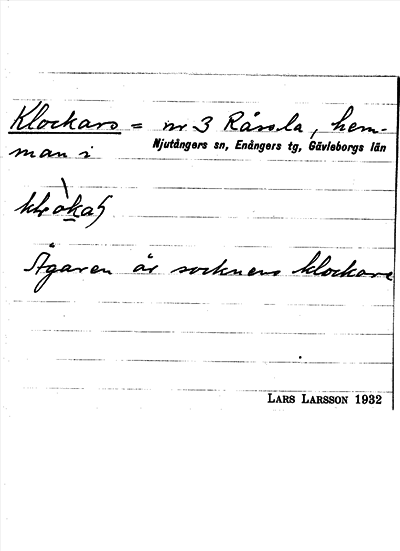 Klockars = nr 3 Råssla, hem-
man i Njutångers sn, Enångers tg, Gävleborgs län
Ägaren är socknens klockare
LARS LARSSON 1932